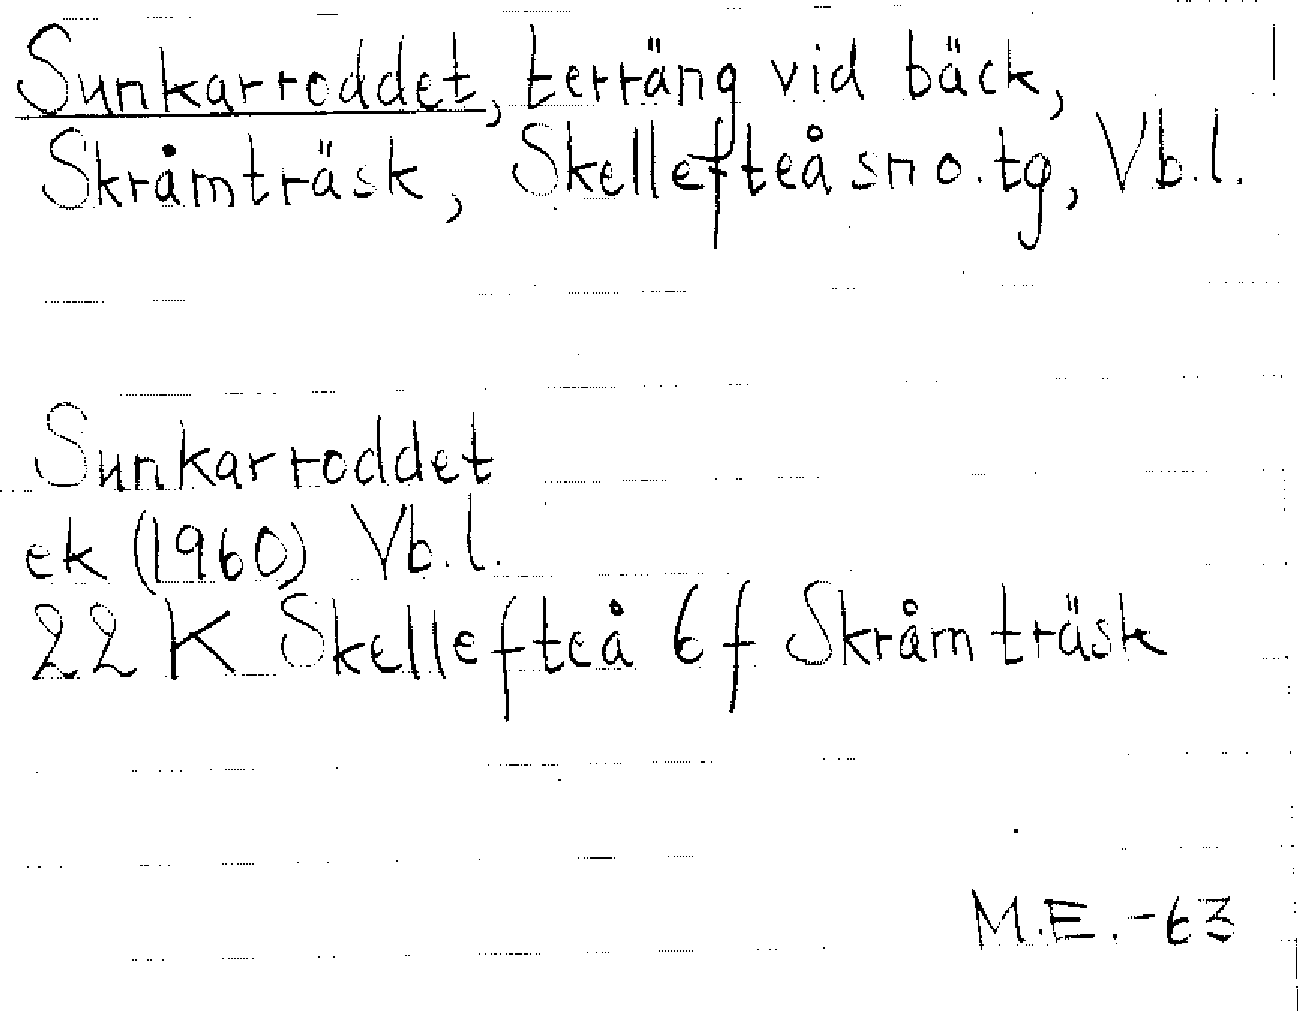 Sunkarroddet, terräng vid bäck,
Skråmträsk, Skellefteå sn o. tg, Vb.l.
Sunkarroddet
ek (1960) Vb.l.
22 K Skellefteå 6 f Skråmträsk
M.E.-63